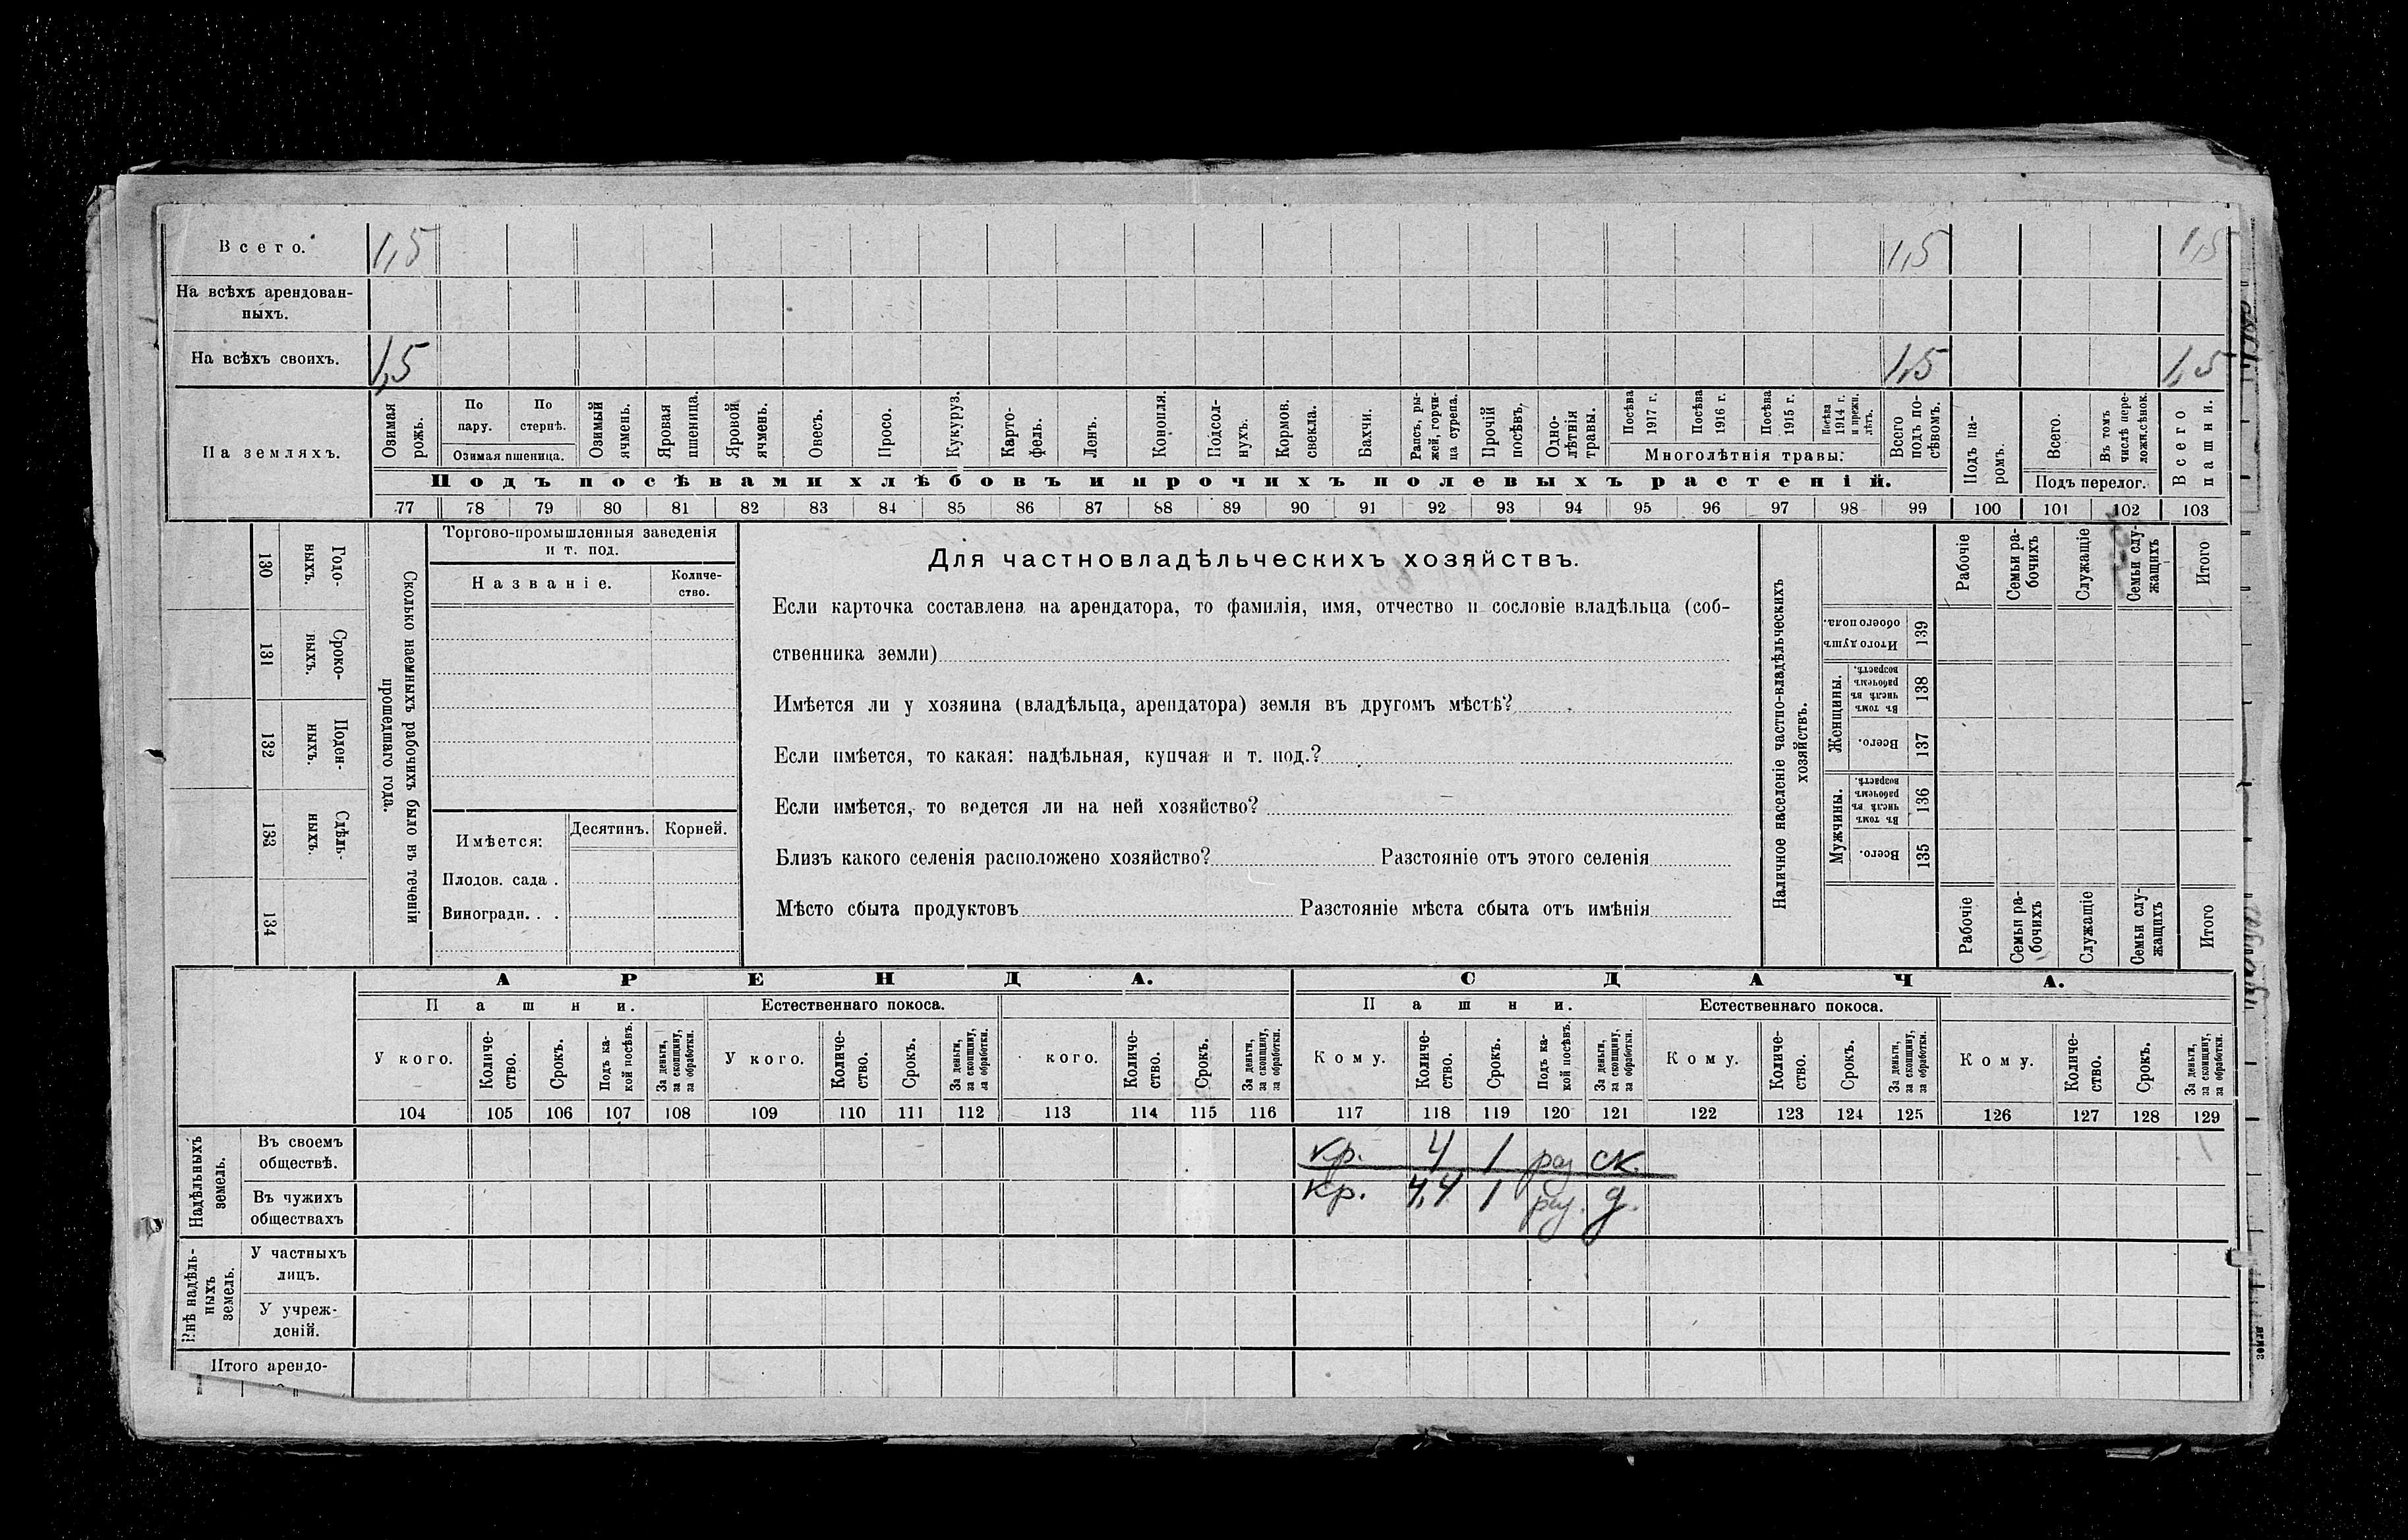 Всего. 1,5 1,5 1,5
На всѣхъ арендован-
ныхъ.
На всѣхъ своихъ. 1,5 1,5 1,5
На земляхъ.
Озимая рожь.
По пару.
По стернѣ.
Озимая пшеница.
Озимый ячмень.
Яровая пшеница.
Яровой ячмень.
Овесъ.
Просо.
Кукуруз.
Карто-
фель.
Ленъ.
Конопля.
Подсол-
нухъ.
Кормов. свекла.
Бахчи.
Рапсъ, ры-
жей, горчи-
ца сурепа.
Прочій посѣвъ.
Одно-
лѣтнія
травы.
Посѣва 1917 г.
Посѣва 1916 г.
Посѣва 1915 г.
Посѣва 1914 г. и прежн. лѣтъ.
Многолѣтнія травы:
Всего подъ по-
сѣвомъ.
Подъ посѣвами хлѣбовъ и прочихъ полевыхъ растеній.
Подъ па-
ромъ.
Всего.
Въ томъ числѣ пере-
ложн.сѣнок.
Подъ перелог.
Всего пашни.
77 78 79 80 81 82 83 84 85 86 87 88 89 90 91 92 93 94 95 96 97 98 99 100 101 102 103
130 Годо-
выхъ.
131 Сроко-
выхъ.
132 Подон-
ныхъ.
133 Сдѣль-
ныхъ.
134
Сколько наемныхъ рабочихъ было въ теченіи
прошедшаго года.
Торгово-промышленныя заведенія
и т. под.
Названіе. Количе-
ство.
Имѣется: Десятинъ. Корней.
Плодов. сада .
Виноградн. . .
Для частновладѣльческихъ хозяйствъ.
Если карточка составлена на арендатора, то фамилія, имя, отчество и сословіе владѣльца (соб-
ственника земли)
Имѣется ли у хозяина (владѣльца, арендатора) земля въ другомъ мѣстѣ?
Если имѣется, то какая: надѣльная, купчая и т. под.?
Если имѣется, то ведется ли на ней хозяйство?
Близъ какого селенія расположено хозяйство? Разстояніе отъ этого селенія
Мѣсто сбыта продуктовъ Разстояніе мѣста сбыта отъ имѣнія
Наличное населеніе частно-владѣльческихъ
хозяйствъ.
Рабочіе
Семьи ра-
бочихъ
Служащіе
Семьи слу-
жащихъ
Итого
Итого душъ обоего пола. 139
Женщины. Въ томъ числѣ въ рабочемъ возрастѣ. 138
Всего. 137
Мужчины. Въ томъ числѣ въ рабочемъ возрастѣ. 136
Всего. 135
Рабочіе
Семьи ра-
бочихъ
Служащіе
Семьи слу-
жащихъ
Итого
АРЕНДА. СДАЧА.
Пашни. Естественнаго покоса. Пашни. Естественнаго покоса.
У кого.
Количе-
ство.
Срокъ.
Подъ ка-
кой посѣвъ.
За деньги,
за скопщину,
за обработки.
У кого.
Количе-
ство.
Срокъ.
За деньги,
за скопщину,
за обработки.
кого.
Количе-
ство.
Срокъ.
За деньги,
за скопщину,
за обработки.
Кому.
Количе-
ство.
Срокъ.
Подъ ка-
кой посѣвъ.
За деньги,
за скопщину,
за обработки.
Кому.
Количе-
ство.
Срокъ.
За деньги,
за скопщину,
за обработки.
Кому.
Количе-
ство.
Срокъ.
За деньги,
за скопщину,
за обработки.
104 105 106 107 108 109 110 111 112 113 114 115 116 117 118 119 120 121 122 123 124 125 126 127 128 129
Надѣльныхъ
земель.
Въ своемъ
обществѣ. кр. 4 1 раз ск.
Въ чужихъ
обществахъ кр. 4,4 1 раз. д.
Внѣ надѣль-
ныхъ
земель.
У частныхъ
лицъ.
У учреж-
деній.
Итого арендо-
земли